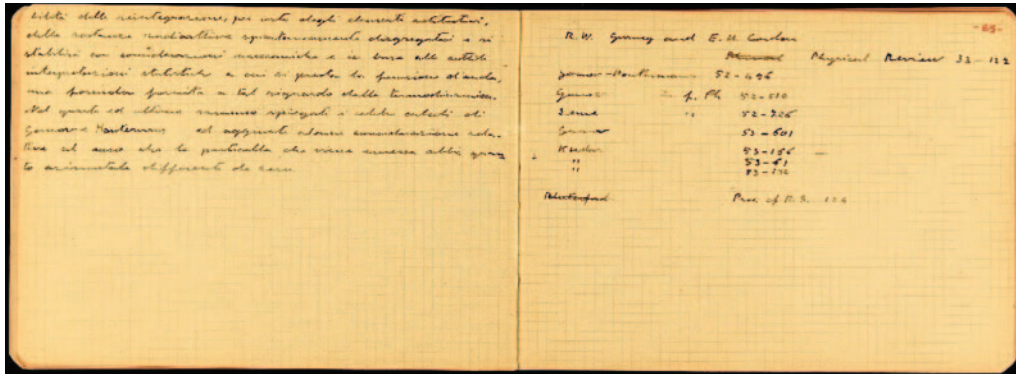 bilità della reintegrazione, per urto degli elementi costitutivi,
della sostanza radioattiva spontaneamente disgregatasi e si
stabilirà con considerazioni meccaniche e in base alle solite
interpretazioni statistiche a cui si presta la funzione d'onda,
una formola fornita a tal riguardo dalla termodinamica.
Nel quarto ed ultimo saranno spiegati i celebri calcoli di
Gamow e Houtermans ed aggiunta alcune considerazione rela-
tive al caso che la particella che viene emessa abbia quan-
to azimutale differente da zero
-65-
R.W. Gurney and E.U. Condon
Physical Review 33-122
Gamow-Houtermans 52-496
Gamow Z. f. Ph 52-510
Laue " 52-726
Gamow 53-601
Kudar 53-166 —
" 53-61
" 53-
Rutherford Proc of R.S. 124